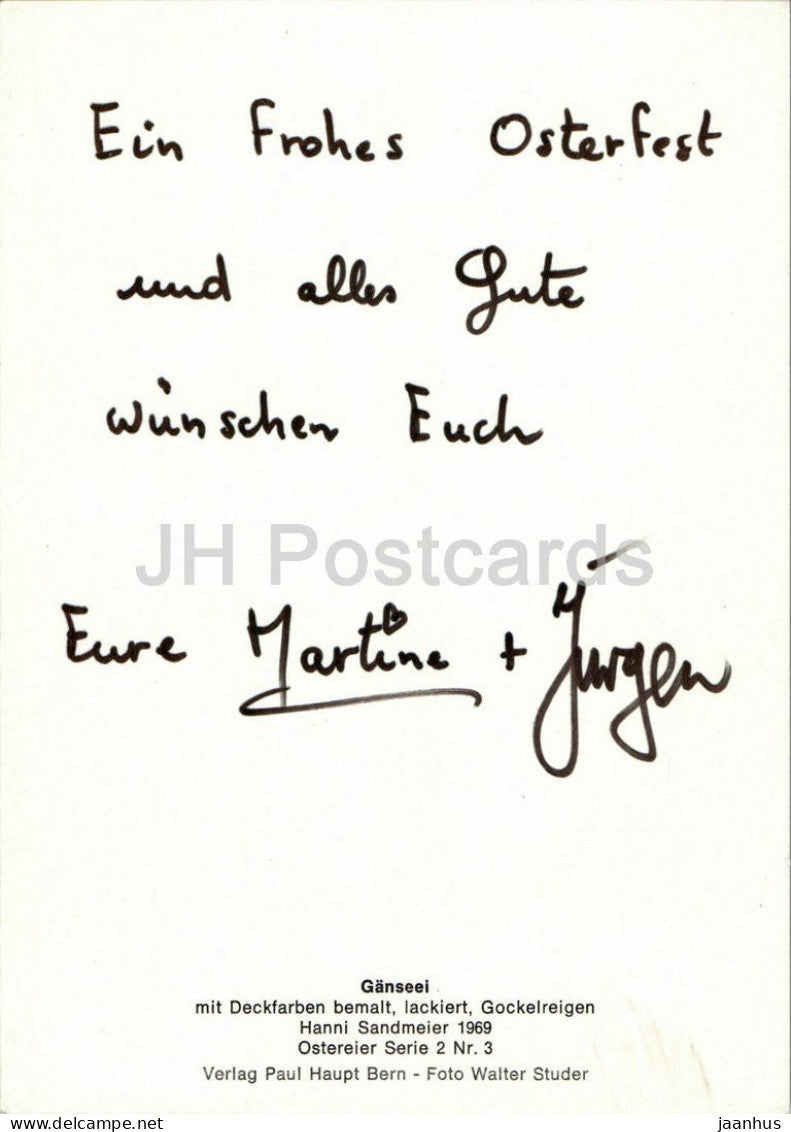 Ein Frohes Osterfest
und alles Gute
wünschen Euch
JH Postcards
Eure Martine + Jürgen
Gänseei
mit Deckfarben bemalt, lackiert, Gockelreigen
Hanni Sandmeier 1969
Ostereier Serie 2 Nr. 3
Verlag Paul Haupt Bern - Foto Walter Studer
www.delcampe.net
jaanhus